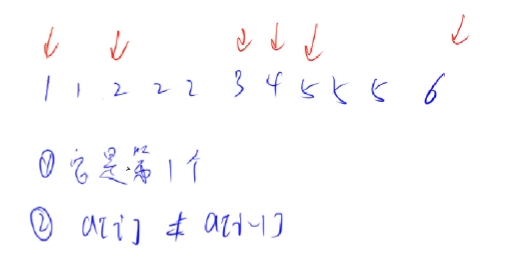 1 1 2 2 2 3 4 5 5 5 6
① 它是第1个
② a[i] ≠ a[i-1]